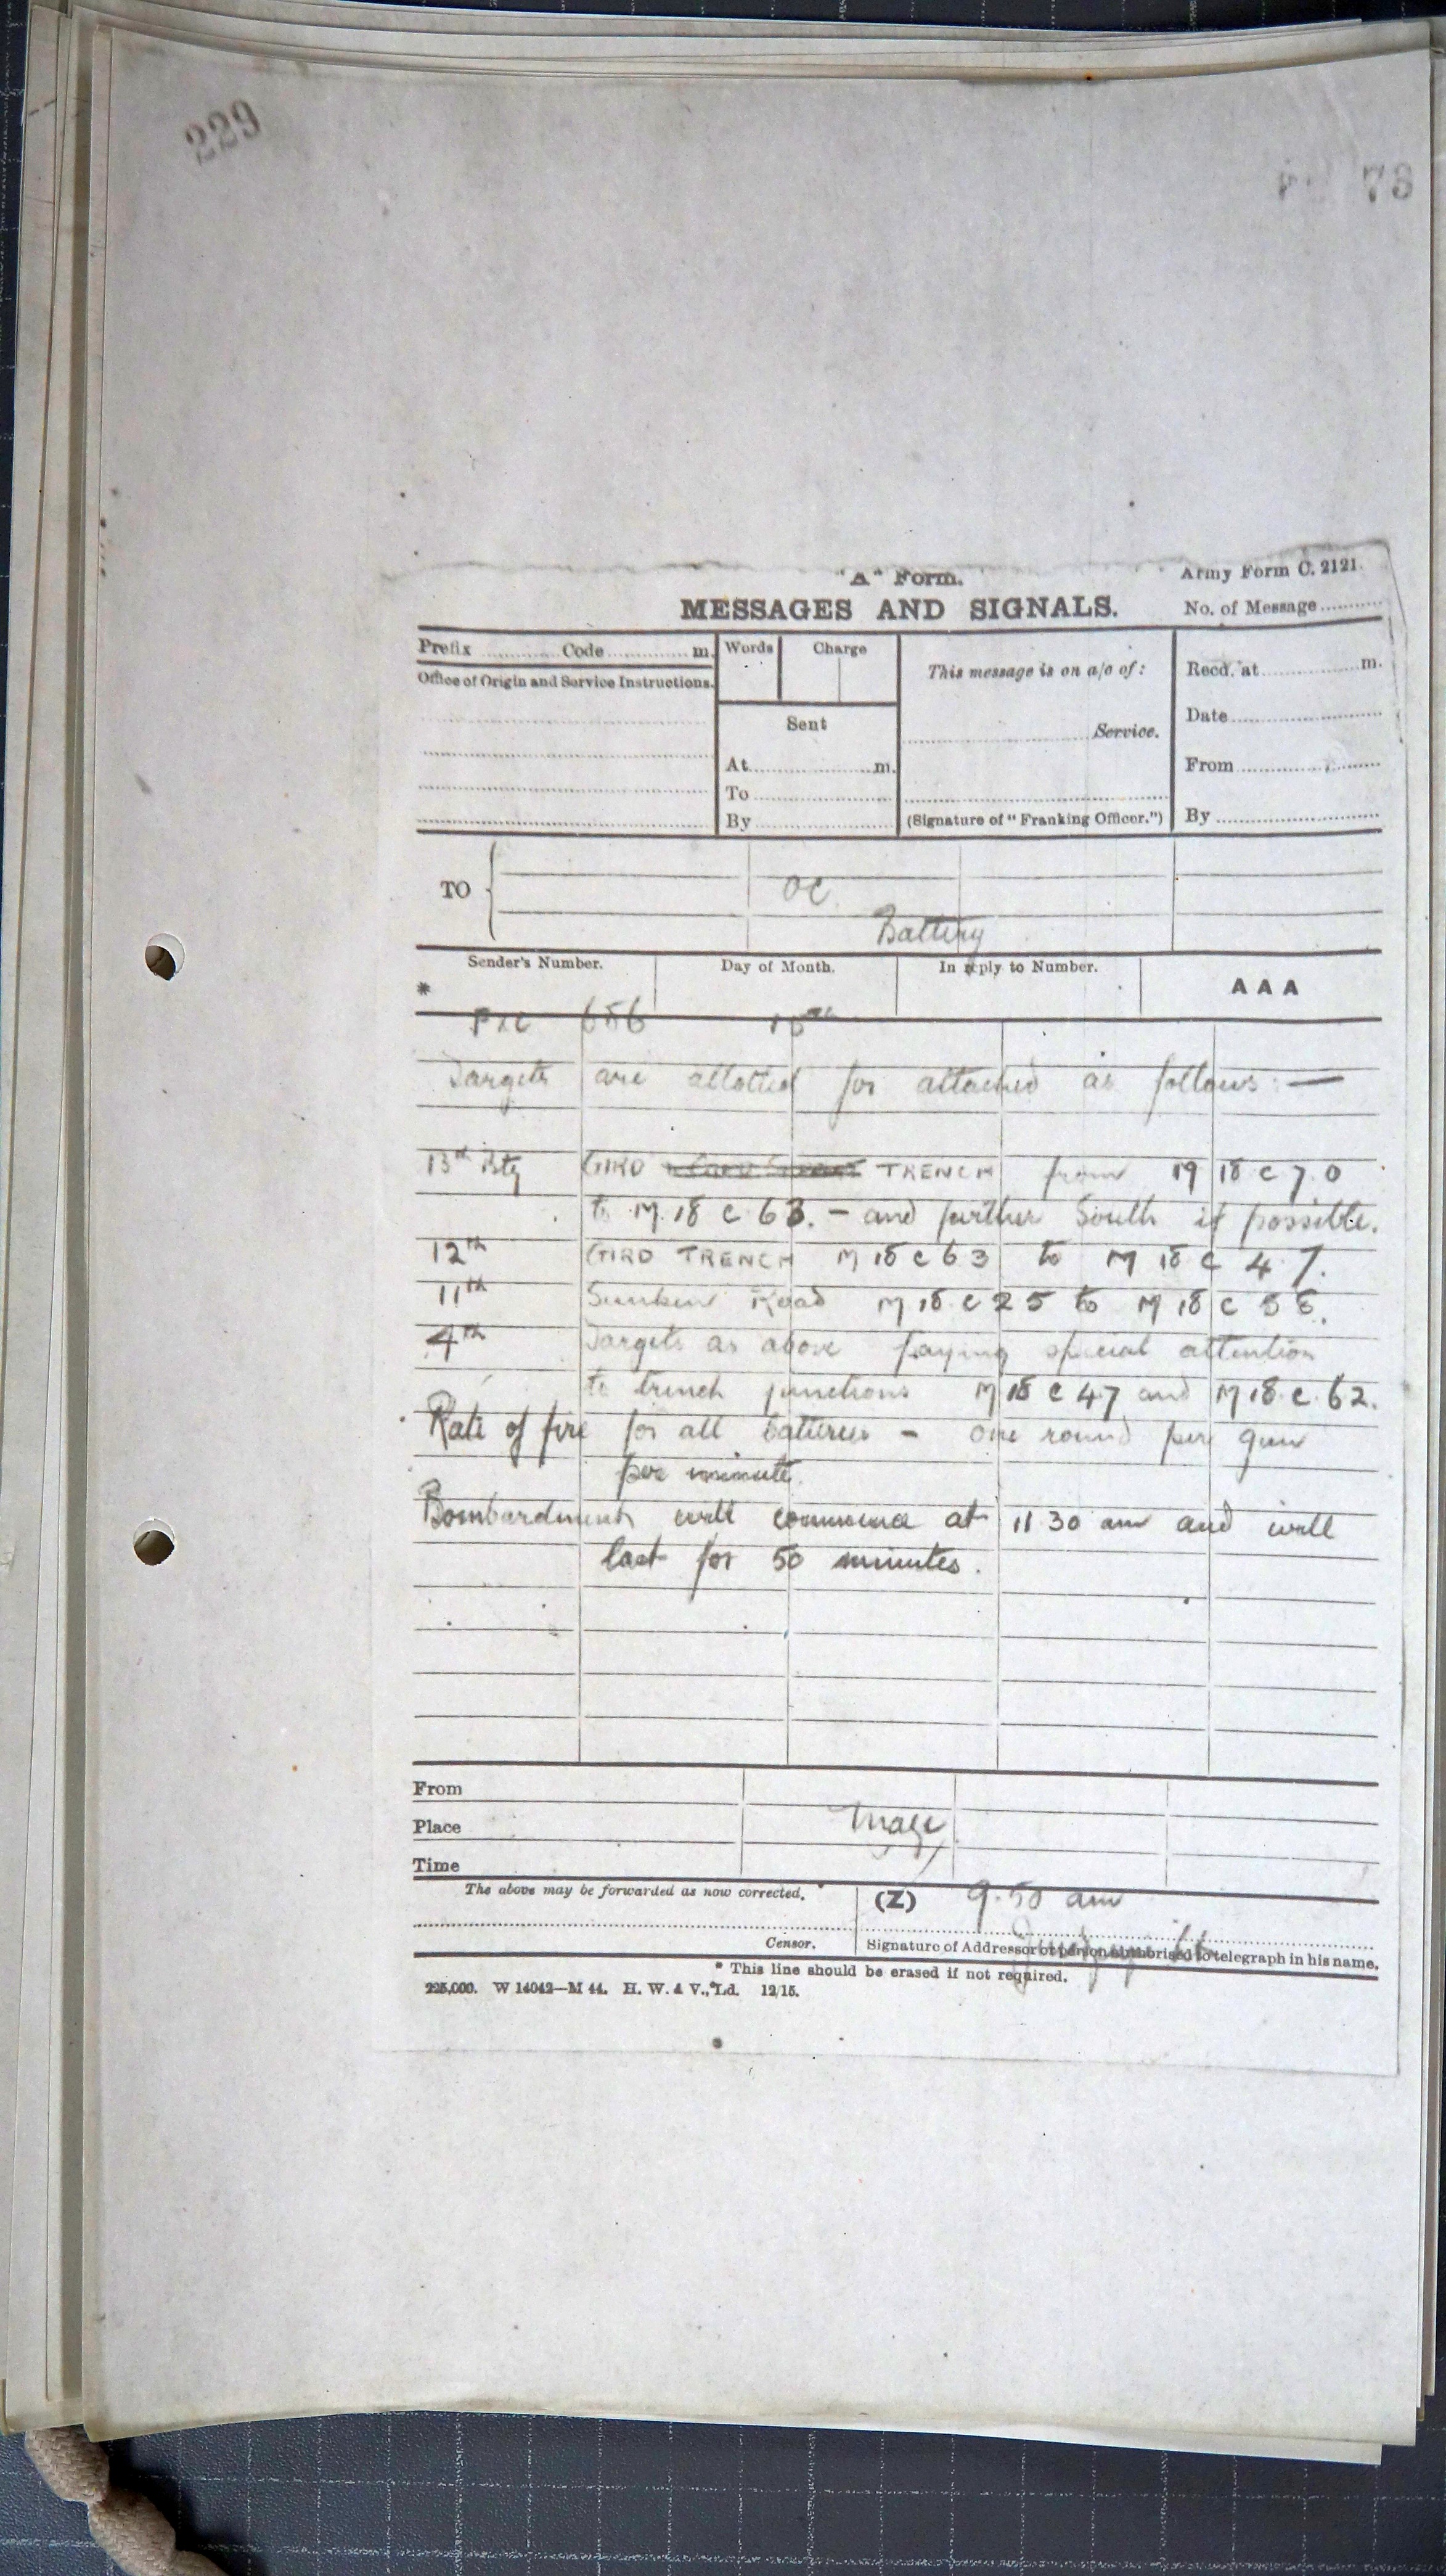 229
73
"A" Form.
Army Form C. 2121.
MESSAGES AND SIGNALS.
No. of Message
Prefix Code m.
Words Charge
This message is on a/c of:
Recd. at m.
Office of Origin and Service Instructions.
Sent
Date
Service.
At m.
From
To
By
(Signature of "Franking Officer.")
By
TO
OC
Battery
Sender's Number. Day of Month. In reply to Number.
* AAA
656 15th
Targets are allotted for attached as follows :—
13th Bty GIRD TRENCH from M 18 c 7 0
to M 18 c 6 3. - and further South if possible.
12th GIRD TRENCH M 18 c 6 3 to M 18 c 4 7.
11th Sunken Road M 18 c 2 5 to M 18 c 5 8.
4th Targets as above paying special attention
to trench junctions M 18 c 47 and M 18 c 62.
Rate of fire for all batteries - one round per gun
per minute.
Bombardment will commence at 11 30 am and will
last for 50 minutes.
From
Place
Time
The above may be forwarded as now corrected.
(Z) 9.50 am
Censor.
Signature of Addressor or person authorised to telegraph in his name.
* This line should be erased if not required.
225,000. W 14042—M 44. H. W. & V., Ld. 12/15.